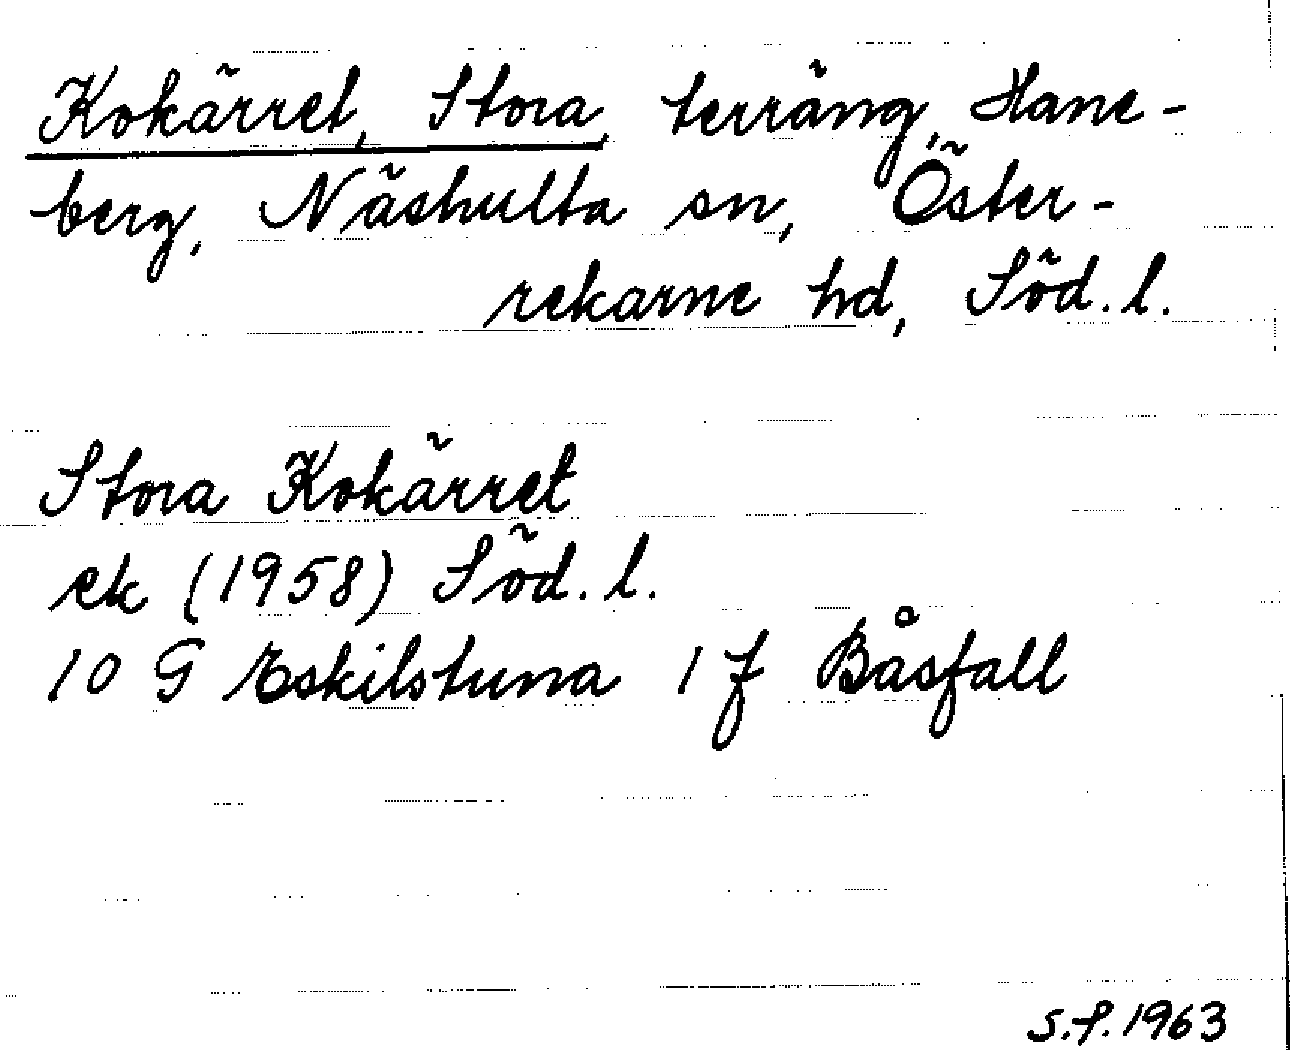 Kokärret, Stora, terräng, Hane-
berg, Näshulta sn, Öster-
rekarne hd, Söd. l.
Stora Kokärret
ek (1958) Söd. l.
10 G Eskilstuna 1 f Båsfall
S.f. 1963